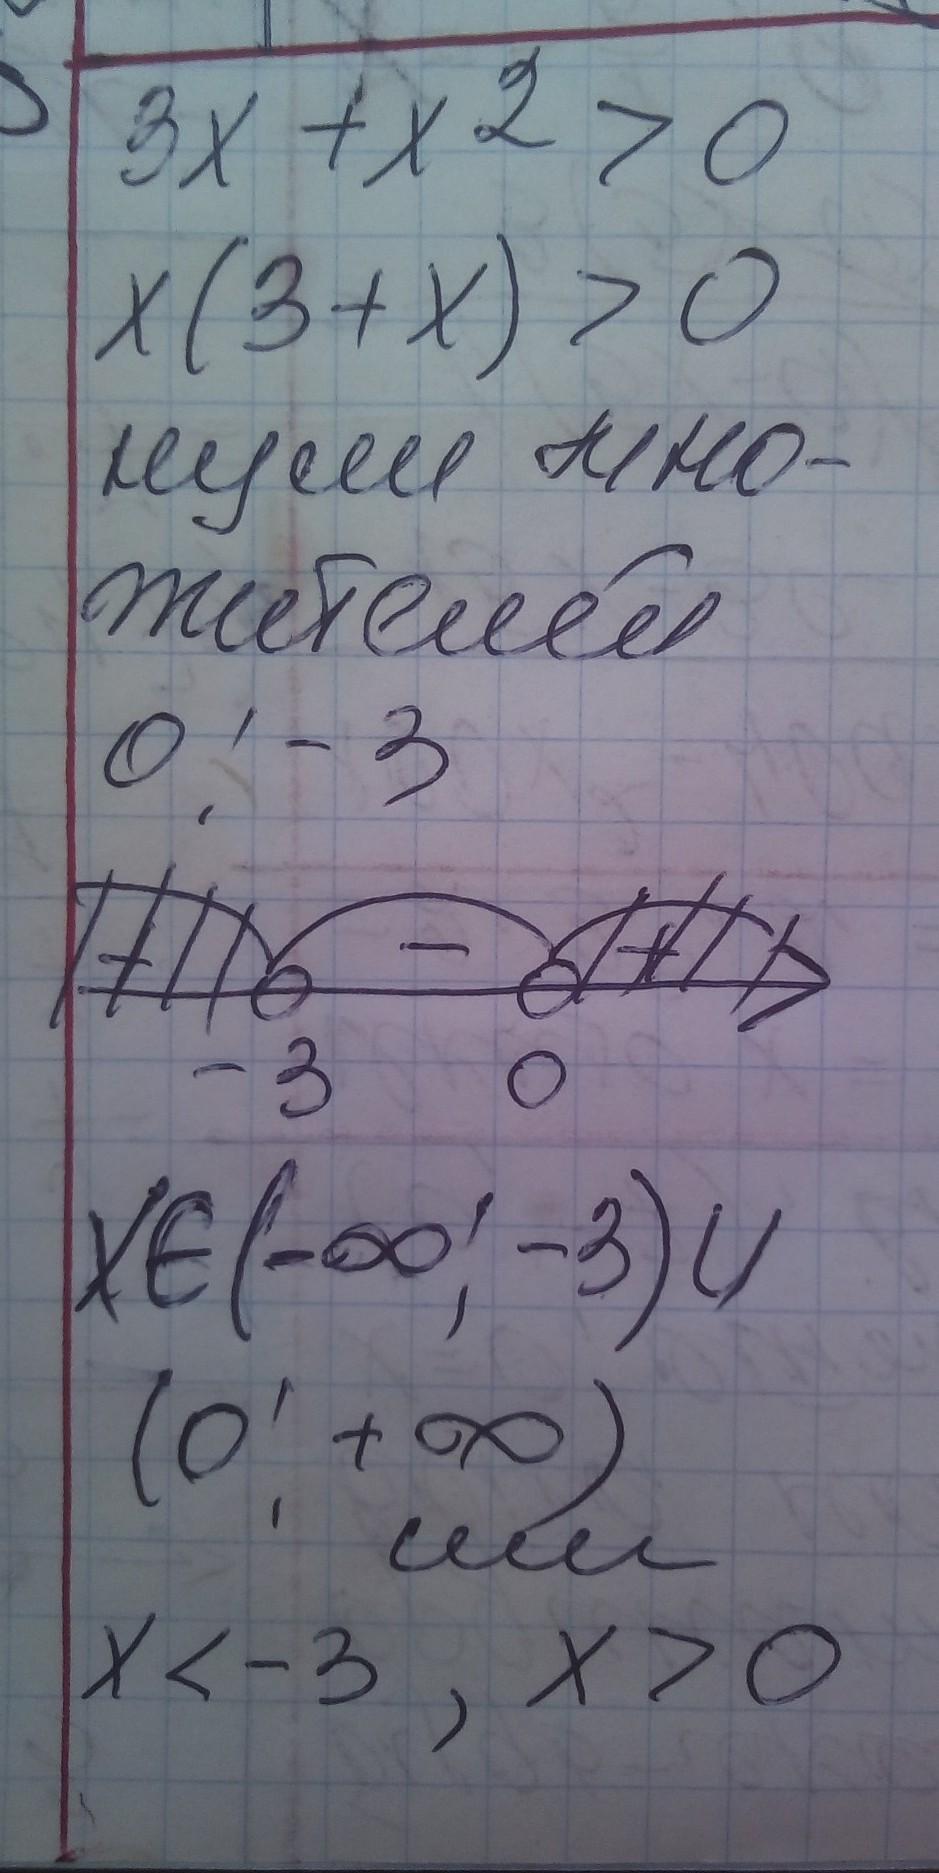 3x + x² > 0
x(3 + x) > 0
нули мно-
жителей
0; -3
+ - +
-3 0
x∈(-∞; -3)∪
(0; +∞)
или
x < -3, x > 0